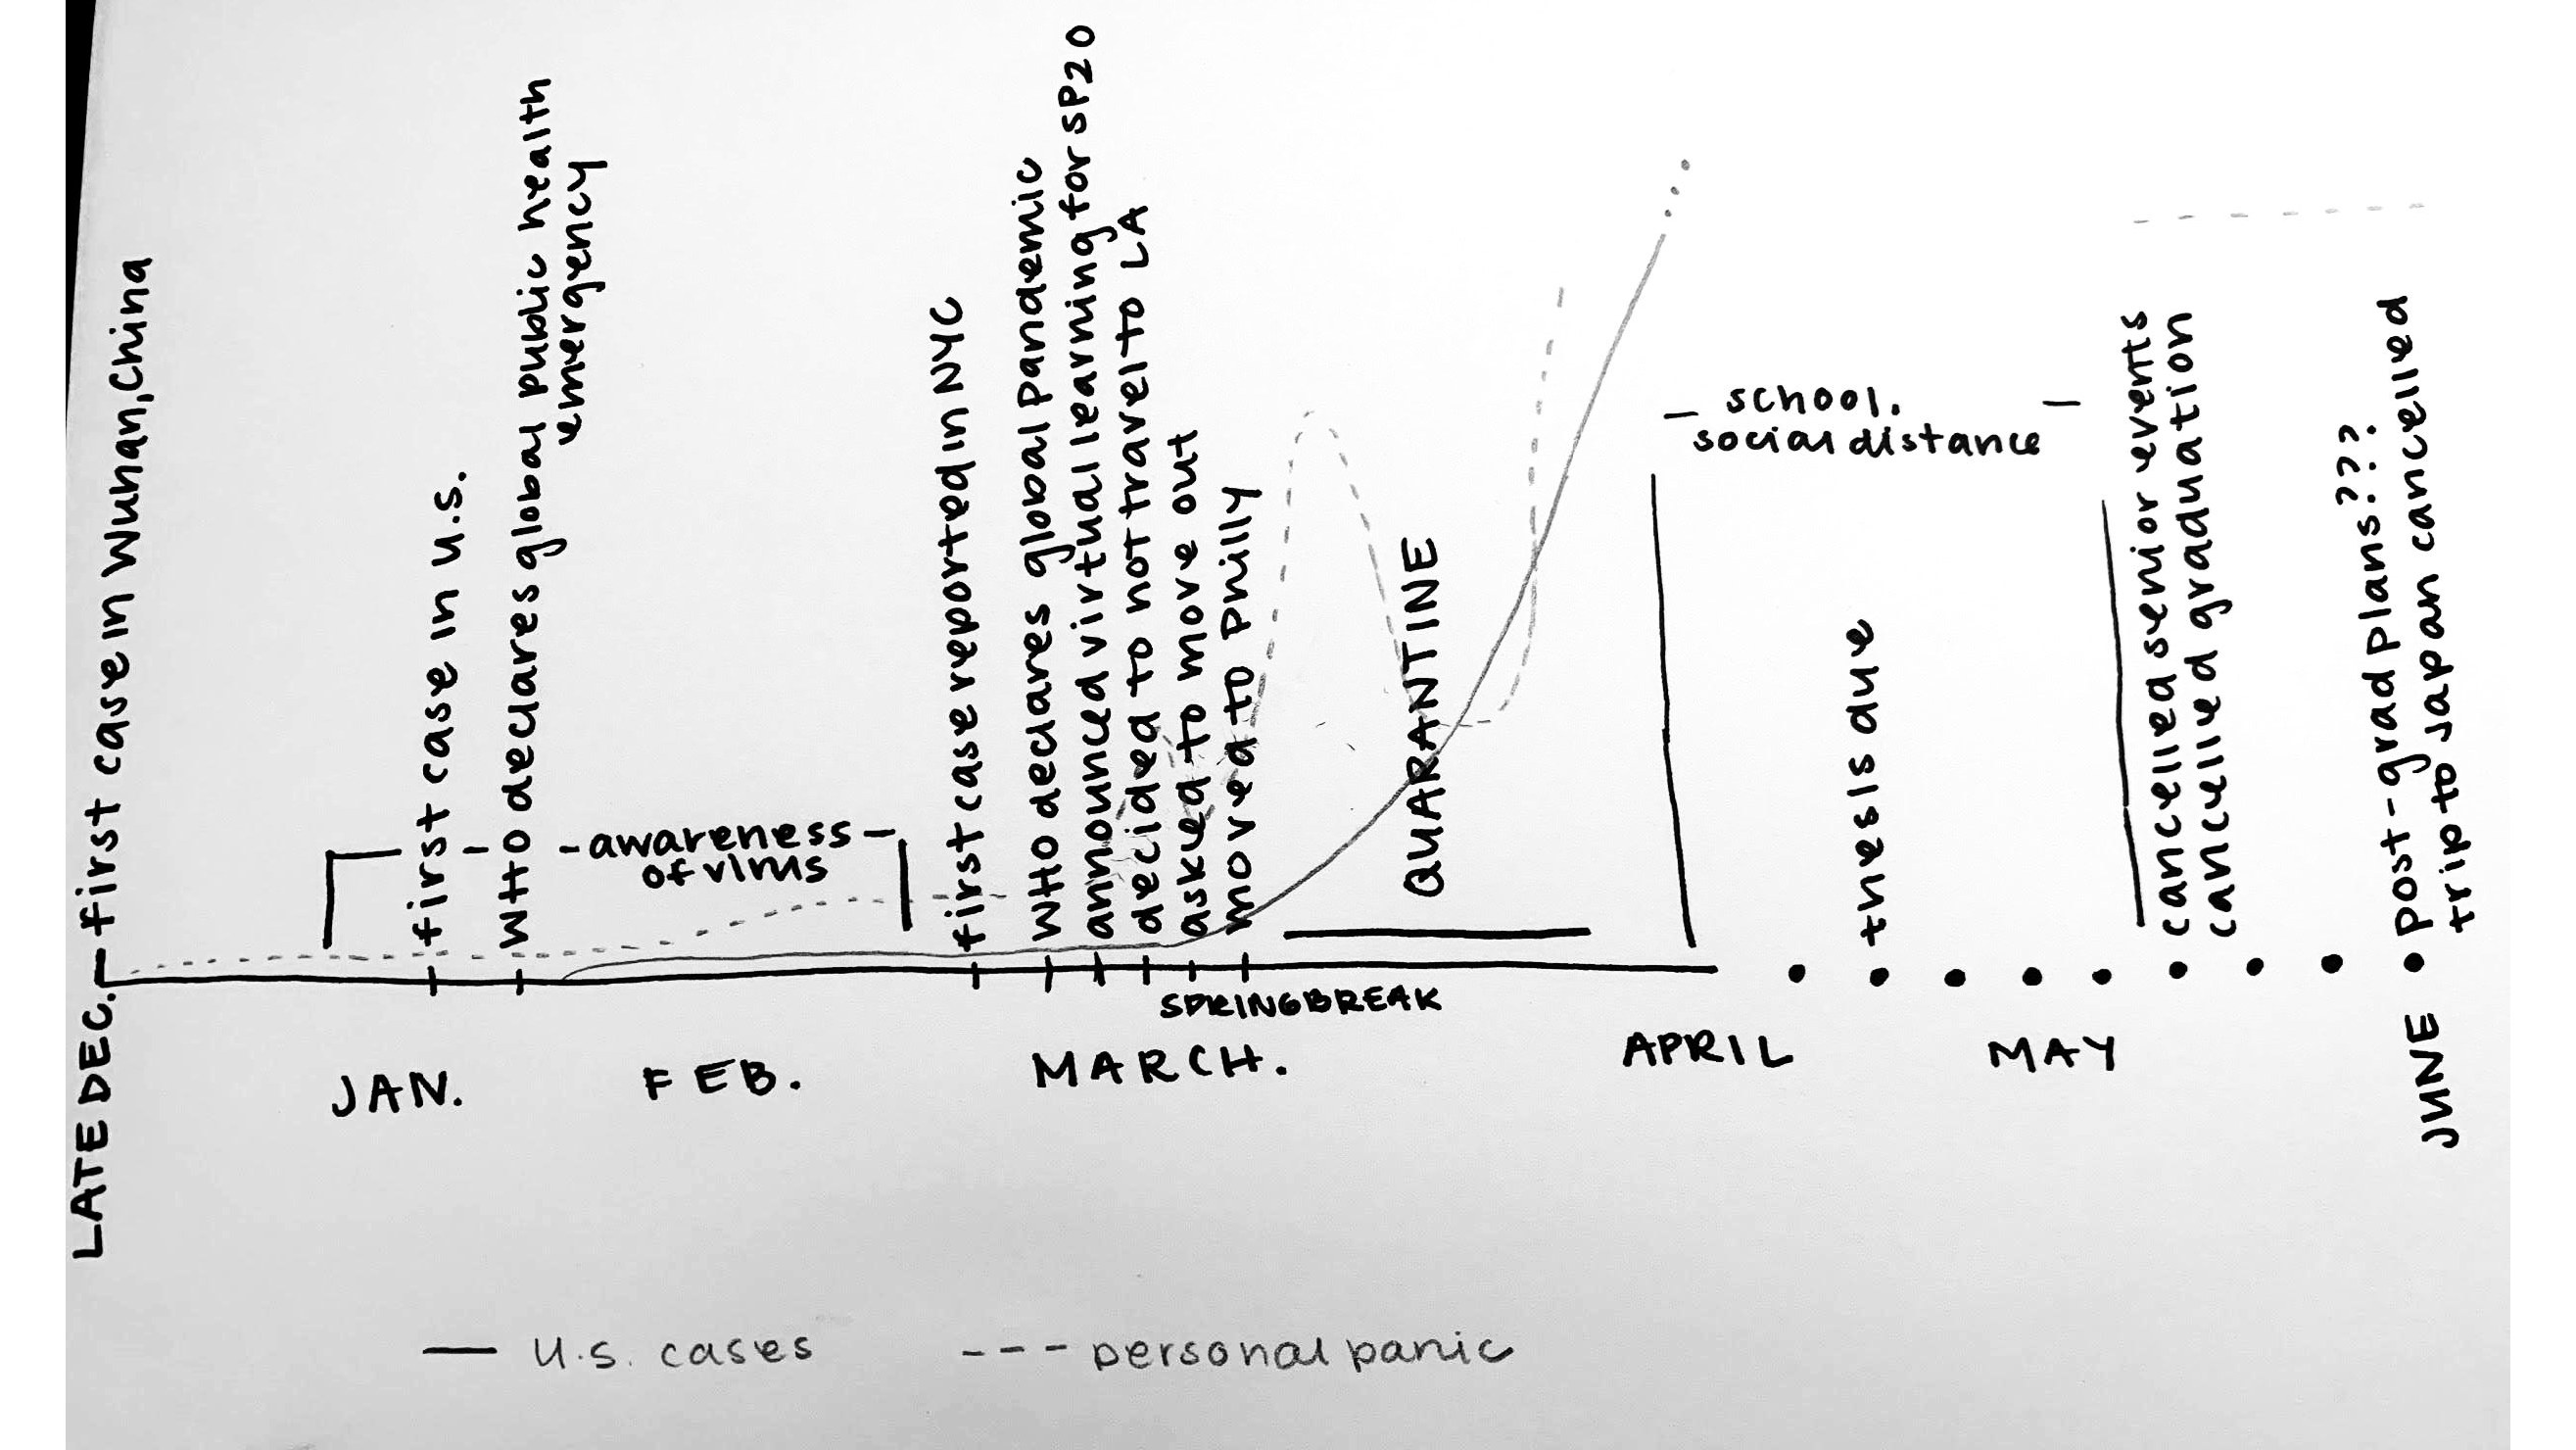 LATE DEC.
first case in Wuhan, China
first case in U.S.
WHO declares global public health
emergency
-awareness-
of virus
first case reported in NYC
WHO declares global pandemic
announced virtual learning for SP20
decided to not travel to LA
asked to move out
moved to philly
QUARANTINE
school.
social distance
thesis due
cancelled senior events
cancelled graduation
post-grad plans???
trip to Japan cancelled
SPRING BREAK
JAN.
FEB.
MARCH.
APRIL
MAY
JUNE
— U.S. cases
--- personal panic